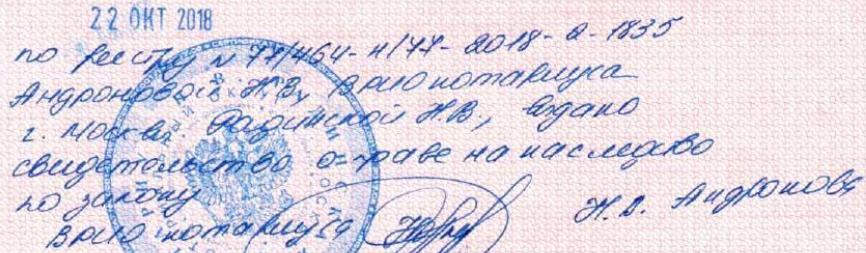 22 ОКТ 2018
по реестру № 77/464-н/77-2018-2-1835
Андроновой Н.В., врио нотариуса
г. Москвы Радинской Н.В., выдано
свидетельство о праве на наследство
по закону
Врио нотариуса Н.В. Андронова